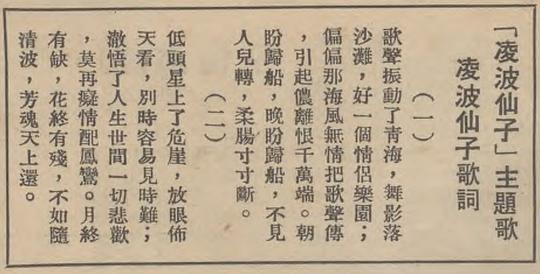 「凌波仙子」主題歌
凌波仙子歌詞
（一）
歌聲振動了青海，舞影落
沙灘，好一個情侶樂園；
偏偏那海風無情把歌聲傳
，引起儂離恨千萬端。朝
盼歸船，晚盼歸船，不見
人兒轉，柔腸寸寸斷。
（二）
低頭星上了危崖，放眼佈
天看，別時容易見時難；
澈悟了人生世間一切悲歡
，莫再癡情配鳳鸞。月終
有缺，花終有殘，不如隨
清波，芳魂天上還。